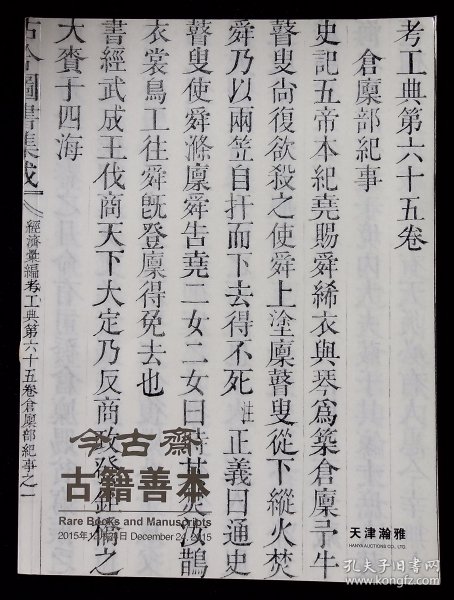 考工典第六十五卷
倉廩部紀事
史記五帝本紀堯賜舜絺衣與琴爲築倉廩予牛
瞽叟尙復欲殺之使舜上塗廩瞽叟從下縱火焚
舜乃以兩笠自扞而下去得不死 註 正義曰通史
瞽叟使舜滌廩舜告堯二女二女曰時其焚汝鵲
衣裳鳥工往舜旣登廩得免去也
書經武成王伐商天下大定乃反商政發鉅橋之
大賚于四海
古今圖書集成
經濟彙編考工典第六十五卷倉廩部紀事之一
今古齋
古籍善本
Rare Books and Manuscripts
2015年12月24日 December 24, 2015
天津瀚雅
HANYA AUCTIONS CO., LTD.
孔夫子旧书网
kongfz.com